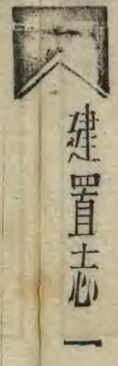 建置志一